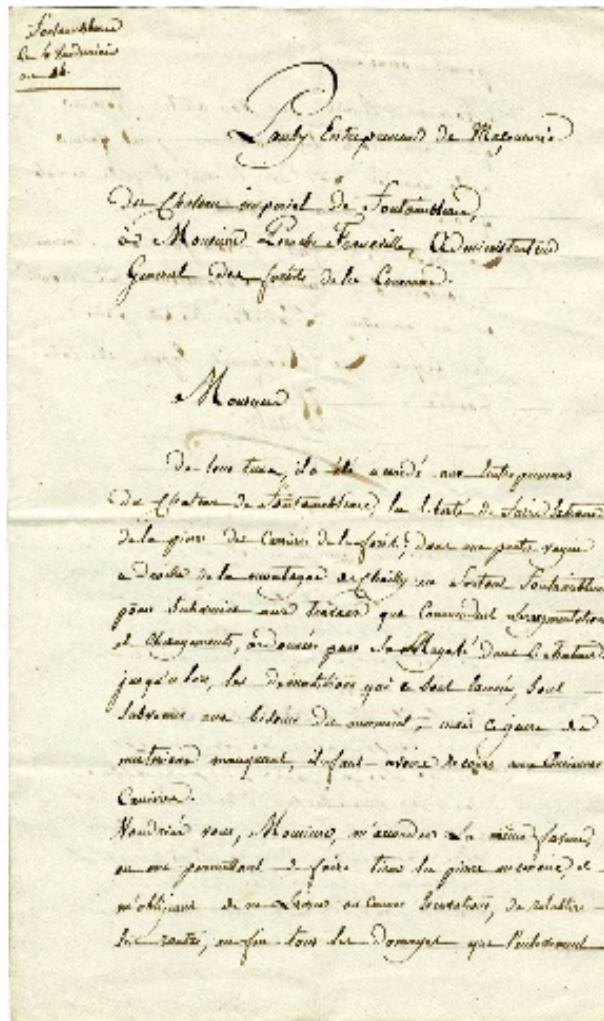 Fontainebleau
Le 6 Vendémiaire
an 14.
Pauly Entrepreneur de Maçonnerie
Du Chateau imperial de Fontainebleau,
à Monsieur Administrateur
General des forêts de la Couronne.
Monsieur
De tous tems, il a été accordé aux Entrepreneurs
du Chateau de Fontainebleau la liberté de faire
de la pierre des Carrieres de la forêt, dans une partie
a droite de la montagne de Chailly en sortant Fontainebleau
pour Subvenir aux travaux que
et changements, ordonnés par Sa Majesté dans le chateau
jusqu'alors, les démolitions qui se sont
Subvenir aux besoins du moment, mais ce genre de
materiaux manquant, il faut avoir recours aux anciennes
Carrieres.
Voudriés vous, Monsieur, m'accorder la même faveur,
en me permettant de faire tirer la pierre necessaire, et
m'obligeant de ne laisser aucune
les routes, enfin tous les domages que